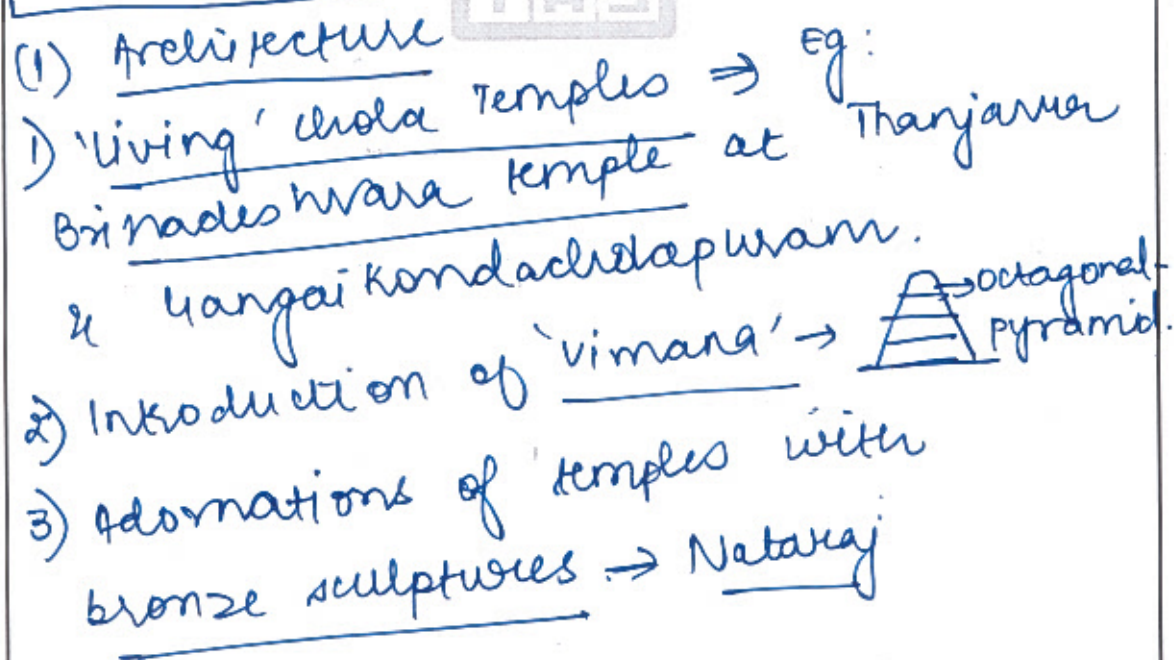 (1) Architecture
1) 'Living' Chola Temples ⇒ Eg:
Brihadeshwara temple at Thanjavur
& Gangaikondacholapuram.
2) Introduction of 'vimana' → → octagonal-
pyramid.
3) Adornations of temples with
bronze sculptures → Nataraj